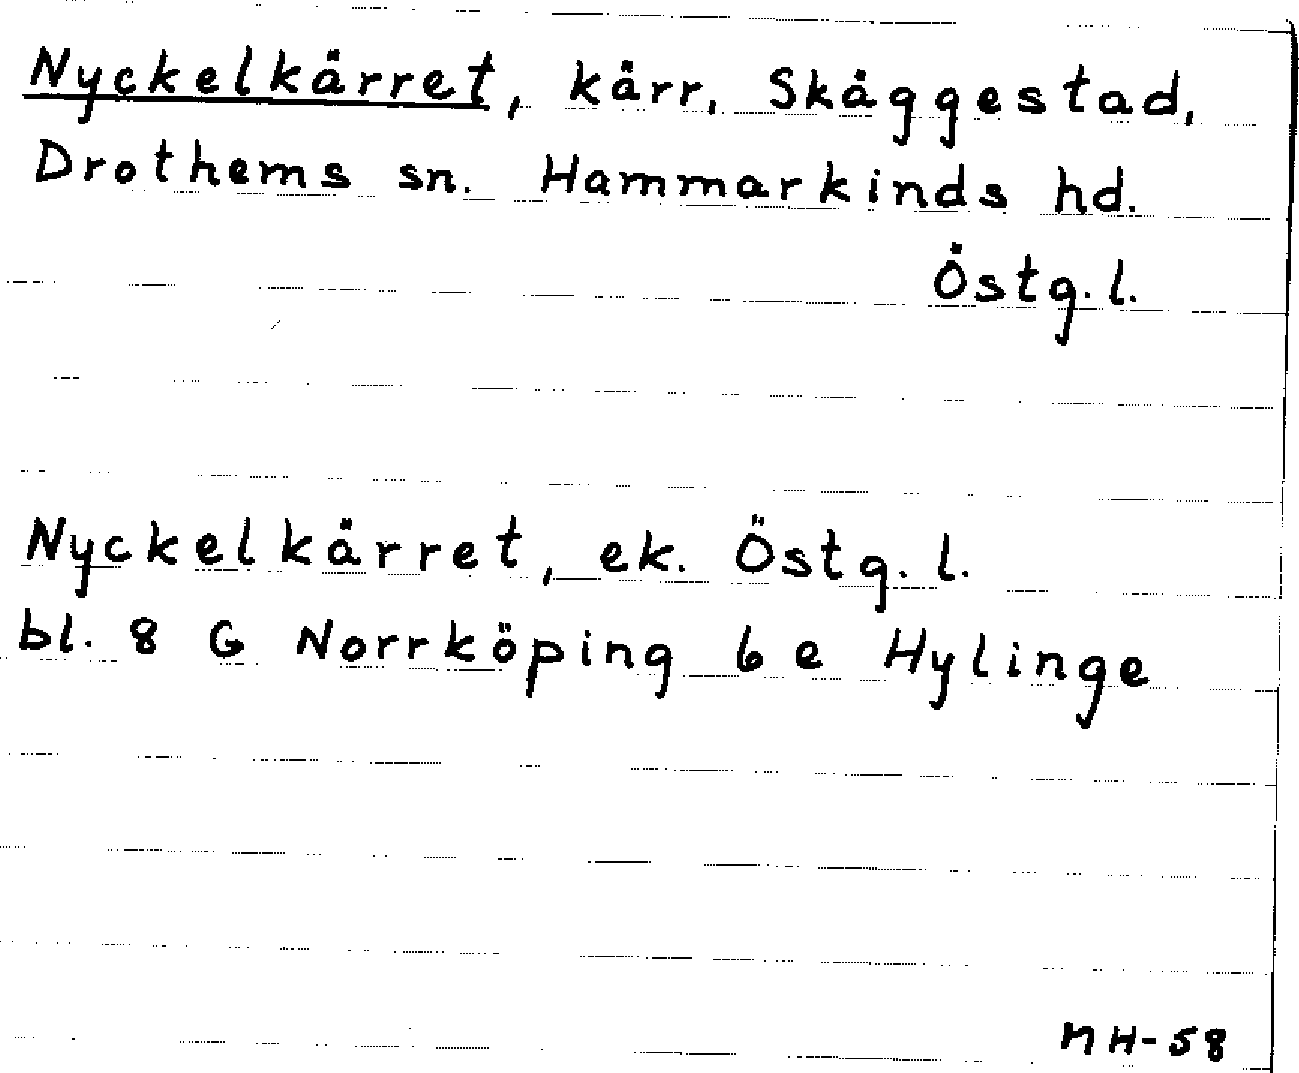 Nyckelkärret, kärr, Skäggestad,
Drothems sn. Hammarkinds hd.
Östg. l.
Nyckelkärret, ek. Östg. l.
bl. 8 G Norrköping 6 e Hylinge
MH-58